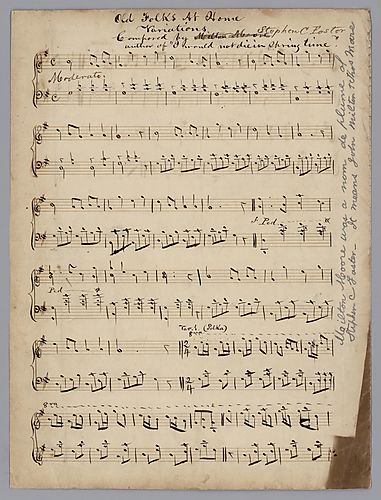 Old Folks At Home
Variations
Composed by Milton Moore Stephen C Foster
author of "I would not die in Spring time"
Moderato.
C
C
8. Ped.
Ped
Var. 1. (Polka)
8va
8va
Milton Moore was a nom de plume of
Stephen C Foster. It means John Milton & Thos Moore